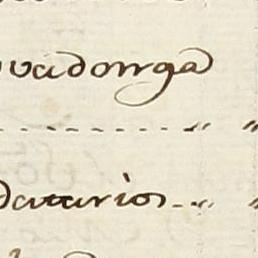 ovadonga
------------ " "
datarios -- " "